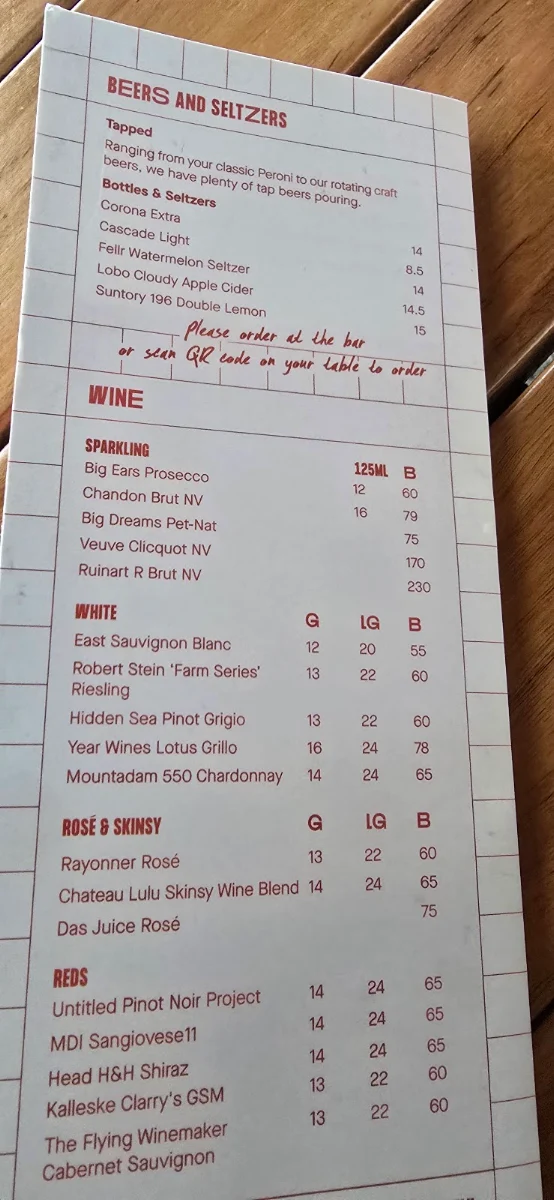 BEERS AND SELTZERS
Tapped
Ranging from your classic Peroni to our rotating craft
beers, we have plenty of tap beers pouring.
Bottles & Seltzers
Corona Extra 14
Cascade Light 8.5
Fellr Watermelon Seltzer 14
Lobo Cloudy Apple Cider 14.5
Suntory 196 Double Lemon 15
please order at the bar
or scan QR code on your table to order
WINE
SPARKLING 125ML B
Big Ears Prosecco 12 60
Chandon Brut NV 16 79
Big Dreams Pet-Nat 75
Veuve Clicquot NV 170
Ruinart R Brut NV 230
WHITE G LG B
East Sauvignon Blanc 12 20 55
Robert Stein 'Farm Series' 13 22 60
Riesling
Hidden Sea Pinot Grigio 13 22 60
Year Wines Lotus Grillo 16 24 78
Mountadam 550 Chardonnay 14 24 65
ROSÉ & SKINSY G LG B
Rayonner Rosé 13 22 60
Chateau Lulu Skinsy Wine Blend 14 24 65
Das Juice Rosé 75
REDS
Untitled Pinot Noir Project 14 24 65
MDI Sangiovese11 14 24 65
Head H&H Shiraz 14 24 65
Kalleske Clarry's GSM 13 22 60
The Flying Winemaker 13 22 60
Cabernet Sauvignon